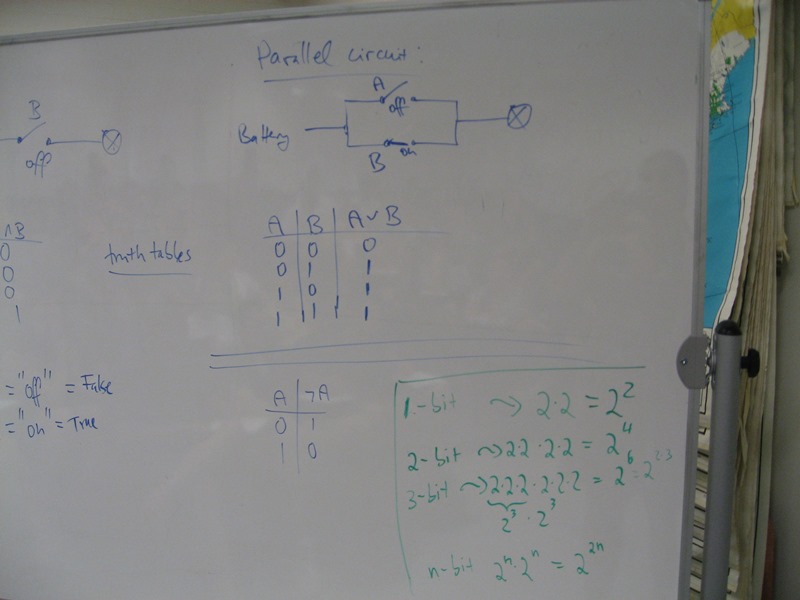 Parallel circuit:
B
off
A
off
Battery
B
on
∧B
0
0
0
1
truth tables
A B A∨B
0 0 0
0 1 1
1 0 1
1 1 1
= "off" = False
= "on" = True
A ¬A
0 1
1 0
1-bit ~> 2·2 = 2²
2-bit ~> 2·2·2·2 = 2⁴
3-bit ~> 2·2·2·2·2·2 = 2⁶ = 2²·³
2³·2³
n-bit 2ⁿ·2ⁿ = 2²ⁿ